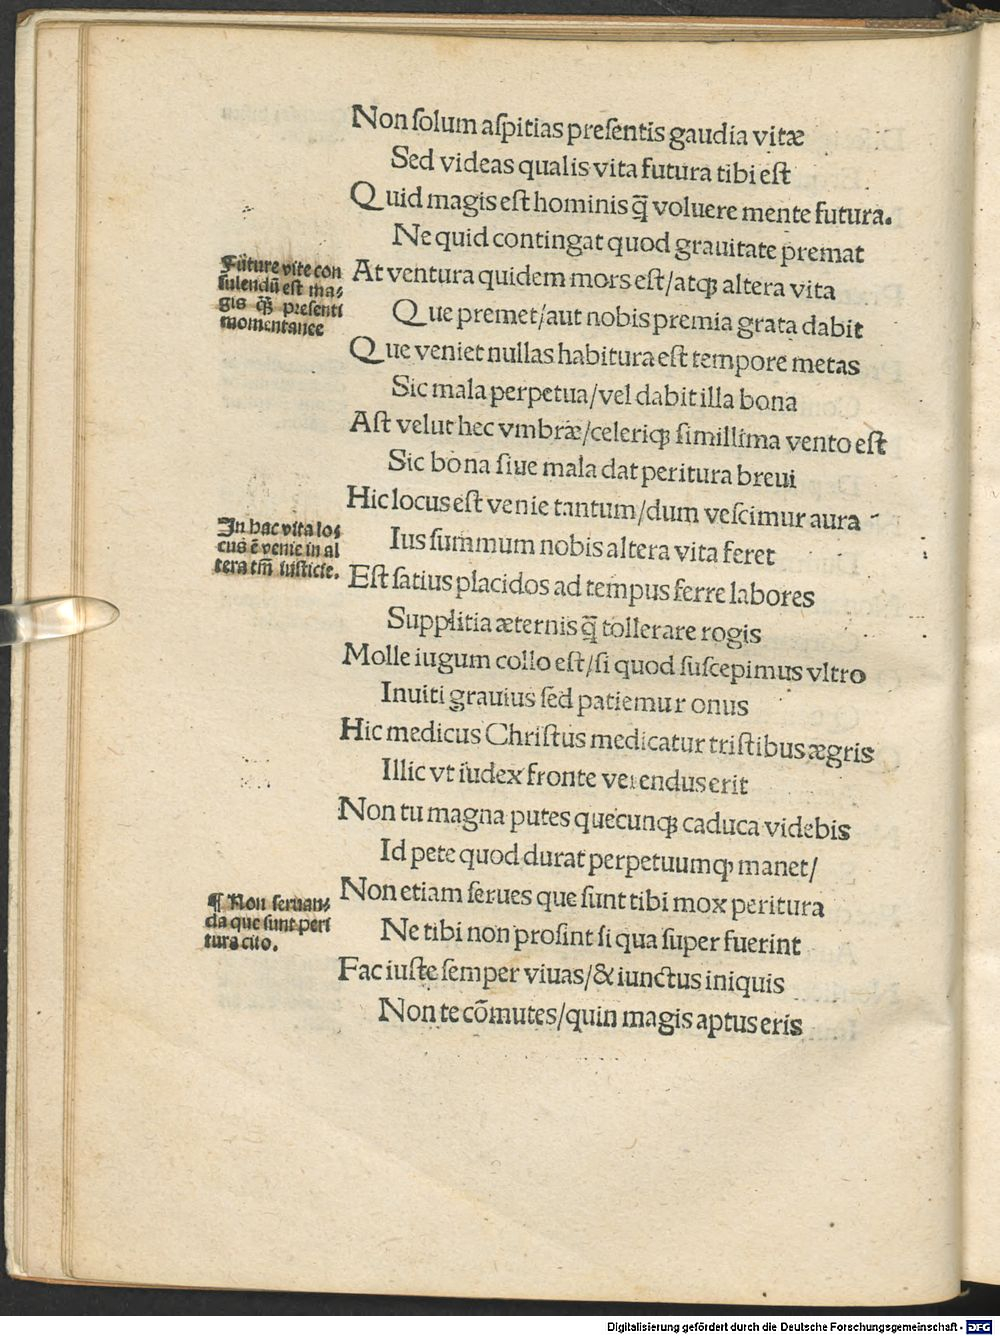 Non ſolum aſpitias preſentis gaudia vitæ
Sed videas qualis vita futura tibi eſt
Quid magis eſt hominis q̄ voluere mente futura.
Ne quid contingat quod grauitate premat
Future vite con
ſulendū eſt ma⸗
gis q̄ʒ preſenti
momentanee
At ventura quidem mors eſt/atqꝫ altera vita
Que premet/aut nobis premia grata dabit
Que veniet nullas habitura eſt tempore metas
Sic mala perpetua/vel dabit illa bona
Aſt velut hec vmbræ/celeriqꝫ ſimillima vento eſt
Sic bona ſiue mala dat peritura breui
Hic locus eſt venie tantum/dum veſcimur aura
In hac vita lo⸗
cus ē venie in al
tera tm̄ iuſticie.
Ius ſummum nobis altera vita feret
Eſt ſatius placidos ad tempus ferre labores
Supplitia æternis q̄ tollerare rogis
Molle iugum collo eſt/ſi quod ſuſcepimus vltro
Inuiti grauius ſed patiemur onus
Hic medicus Chriſtus medicatur triſtibus ægris
Illic vt iudex fronte verendus erit
Non tu magna putes quecunqꝫ caduca videbis
Id pete quod durat perpetuumqꝫ manet/
¶ Non ſeruan⸗
da que ſunt peri
tura cito.
Non etiam ſerues que ſunt tibi mox peritura
Ne tibi non proſint ſi qua ſuper fuerint
Fac iuſte ſemper viuas/& iunctus iniquis
Non te cōmutes/quin magis aptus eris
Digitalisierung gefördert durch die Deutsche Forschungsgemeinschaft - DFG